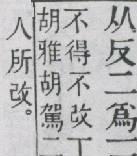 从反二爲
不得不改
胡雅胡駕二
人所改。